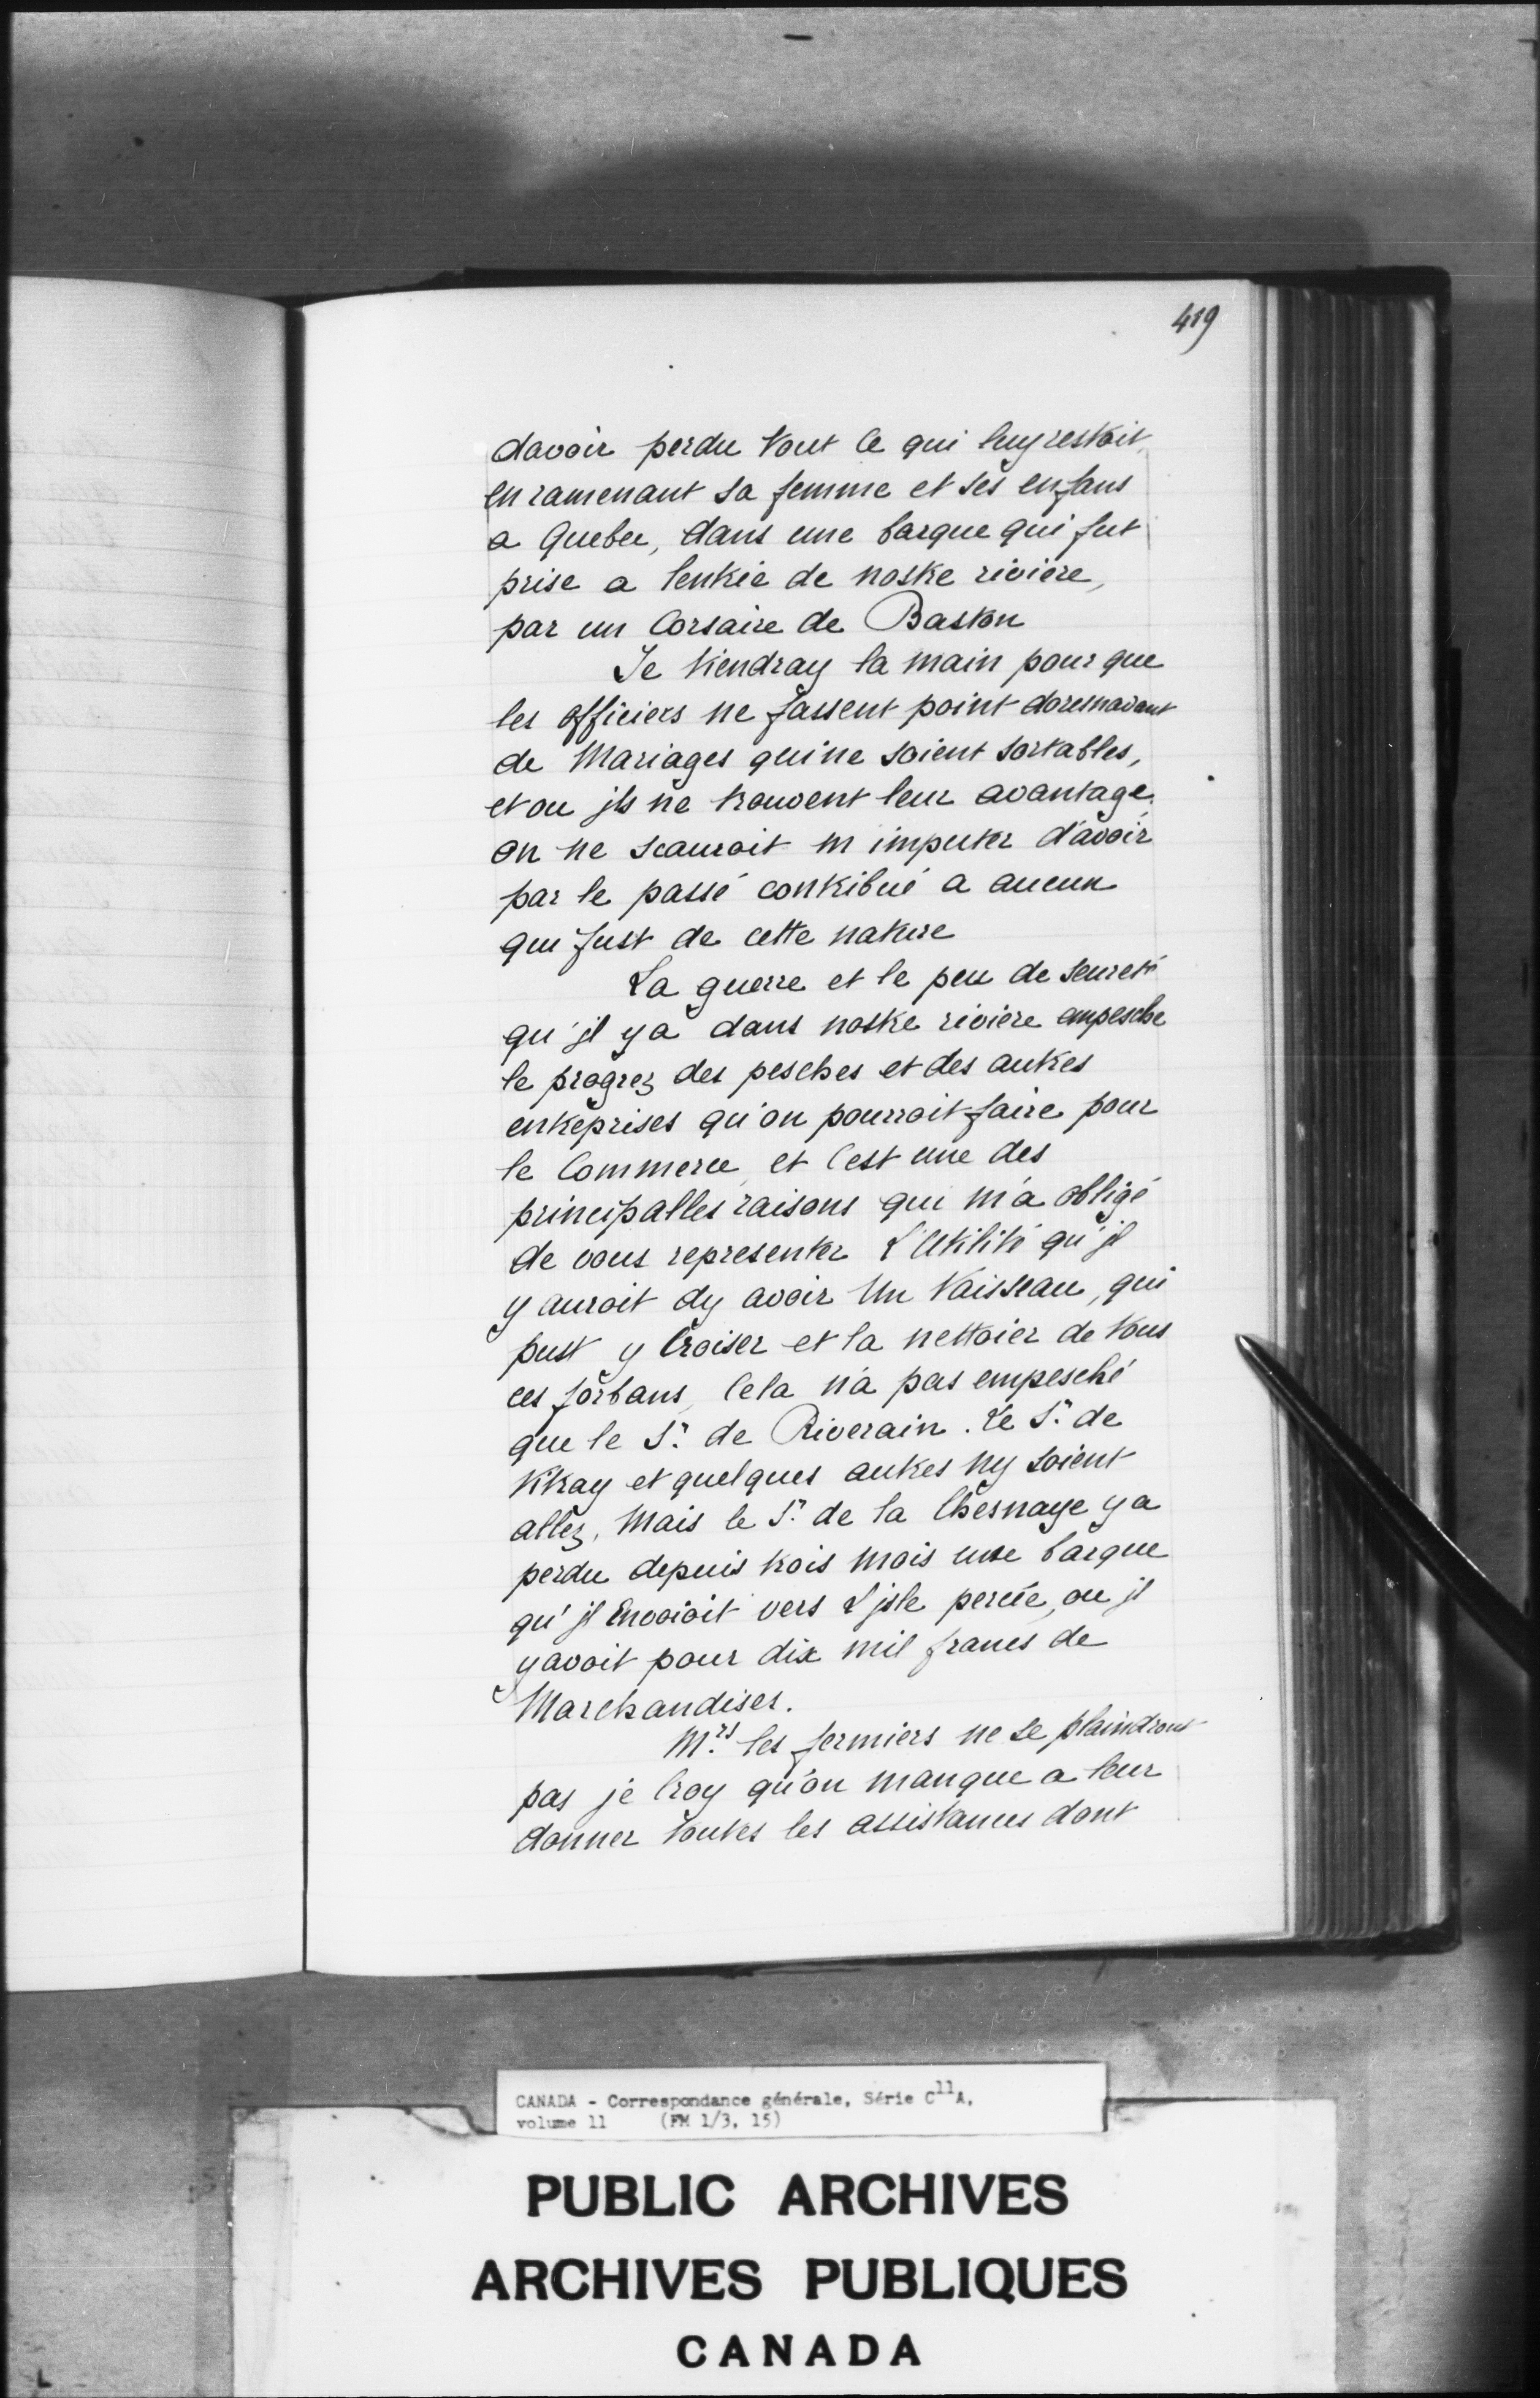 419
davoir perdu tout ce qui luy restoit,
en ramenant sa femme et ses enfans
a Quebec, dans une barque qui fut
prise a lentrée de nostre riviere,
par un Corsaire de Baston
Je tiendray la main pour que
les officiers ne fassent point doresnavant
de Mariages qui ne soient sortables,
et ou jls ne trouvent leur avantage.
on ne scauroit m imputer d'avoir
par le passé contribué a aucun
qui fust de cette nature
La guerre et le peu de seureté
qu'jl y a dans nostre riviere empesche
le progrez des pesches et des autres
entreprises qu'on pourroit faire pour
le Commerce, et c'est une des
principalles raisons qui m'a obligé
de vous representer L'Utilité qu'jl
y auroit dy avoir Un Vaisseau, qui
pust y Croiser et la nettoier de tous
ces forbans, Cela n'a pas empesché
que le Sr. de Riverain. Le Sr. de
Vitray et quelques autres ny soient
allez, Mais le Sr. de la Chesnaye y a
perdu depuis trois mois une barque
qu'jl Envoioit vers L'jsle percée, ou jl
y avoit pour dix mil francs de
Marchandises.
Mrs. les fermiers ne se plaindront
pas je Croy qu'on manque a leur
donner toutes les assistances dont
CANADA - Correspondance générale, Série C11A,
volume 11 (FM 1/3, 15)
PUBLIC ARCHIVES
ARCHIVES PUBLIQUES
CANADA